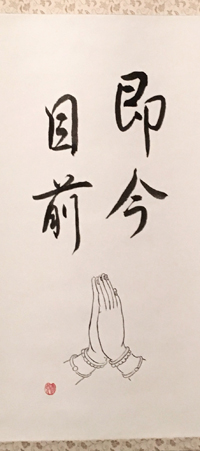 即今
目前